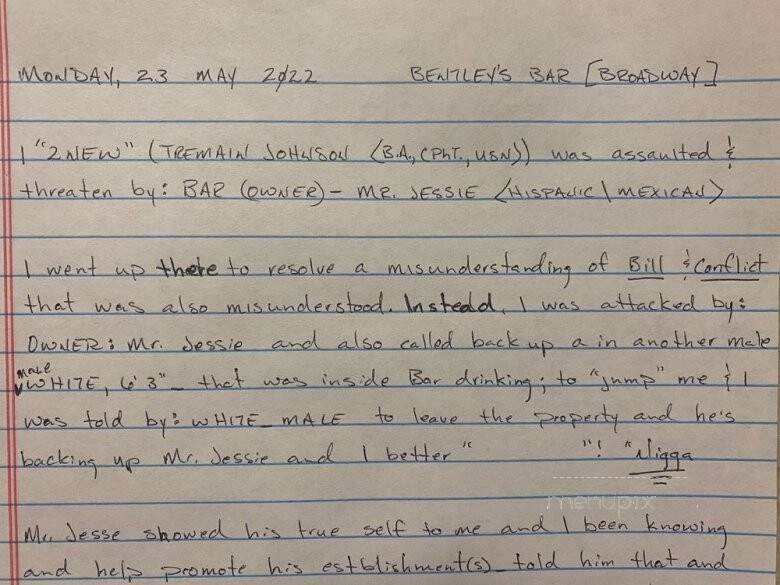 MONDAY, 23 MAY 2022 BENTLEY'S BAR [BROADWAY]
I "2NEW" (TREMAIN JOHNSON (B.A., CPhT., USN)) was assaulted &
threaten by: BAR (OWNER) - MR. JESSIE (HISPANIC \ MEXICAN)
I went up there to resolve a misunderstanding of Bill & Conflict
that was also misunderstood. Instead, I was attacked by:
OWNER: Mr. Jessie and also called back up a in another male
male
WHITE, 6'3"_ that was inside Bar drinking; to "jump" me & I
was told by: WHITE_MALE to leave the property and he's
backing up Mr. Jessie and I better " "! "Nigga
menupix
Mr. Jesse showed his true self to me and I been knowing
and help promote his estblishment(s)_ told him that and